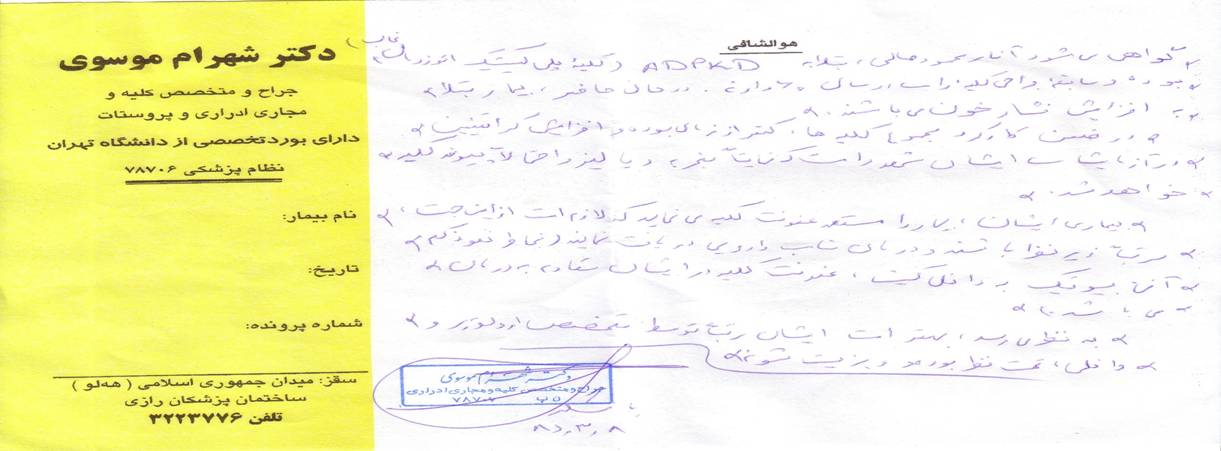 دکتر شهرام موسوی
جراح و متخصص کلیه و
مجاری ادراری و پروستات
دارای بورد تخصصی از دانشگاه تهران
نظام پزشکی ۷۸۷۰۶
نام بیمار:
تاریخ:
شماره پرونده:
سقز: میدان جمهوری اسلامی (هه‌لو)
ساختمان پزشکان رازی
تلفن ۳۲۲۳۷۷۶
هوالشافی
گواهی می شود آقای محمود صالحی، مبتلا به ADPKD (کلیه پلی کیستیک اتوزومال غالب)
بوده و سابقه جراحی کلیه راست در سال دارد. در حال حاضر، بیمار مبتلا
به افزایش فشار خون می باشند.
در ضمن کارکرد مجموع کلیه ها، کمتر از نرمال بوده و افزایش کراتینین
در آزمایشات ایشان مشهود است که نهایتاً منجر به دیالیز و احتمالاً پیوند کلیه
خواهد شد.
بیماری ایشان، بیمار را مستعد عفونت کلیه می نماید که لازم است از این جهت،
مرتباً زیر نظر باشند و درمان مناسب دارویی دریافت نمایند (بخاطر نفوذ کم
آنتی بیوتیک به داخل کیست، عفونت کلیه در ایشان مقاوم به درمان
می باشد).
به نظر می رسد، بهتر است ایشان مرتباً توسط متخصص ارولوژی و
داخلی، تحت نظر بوده و ویزیت شوند.
دکتر شهرام موسوی
جراح و متخصص کلیه و مجاری ادراری
ن پ ۷۸۷۰۶
با تشکر
۸۵,۳,۸